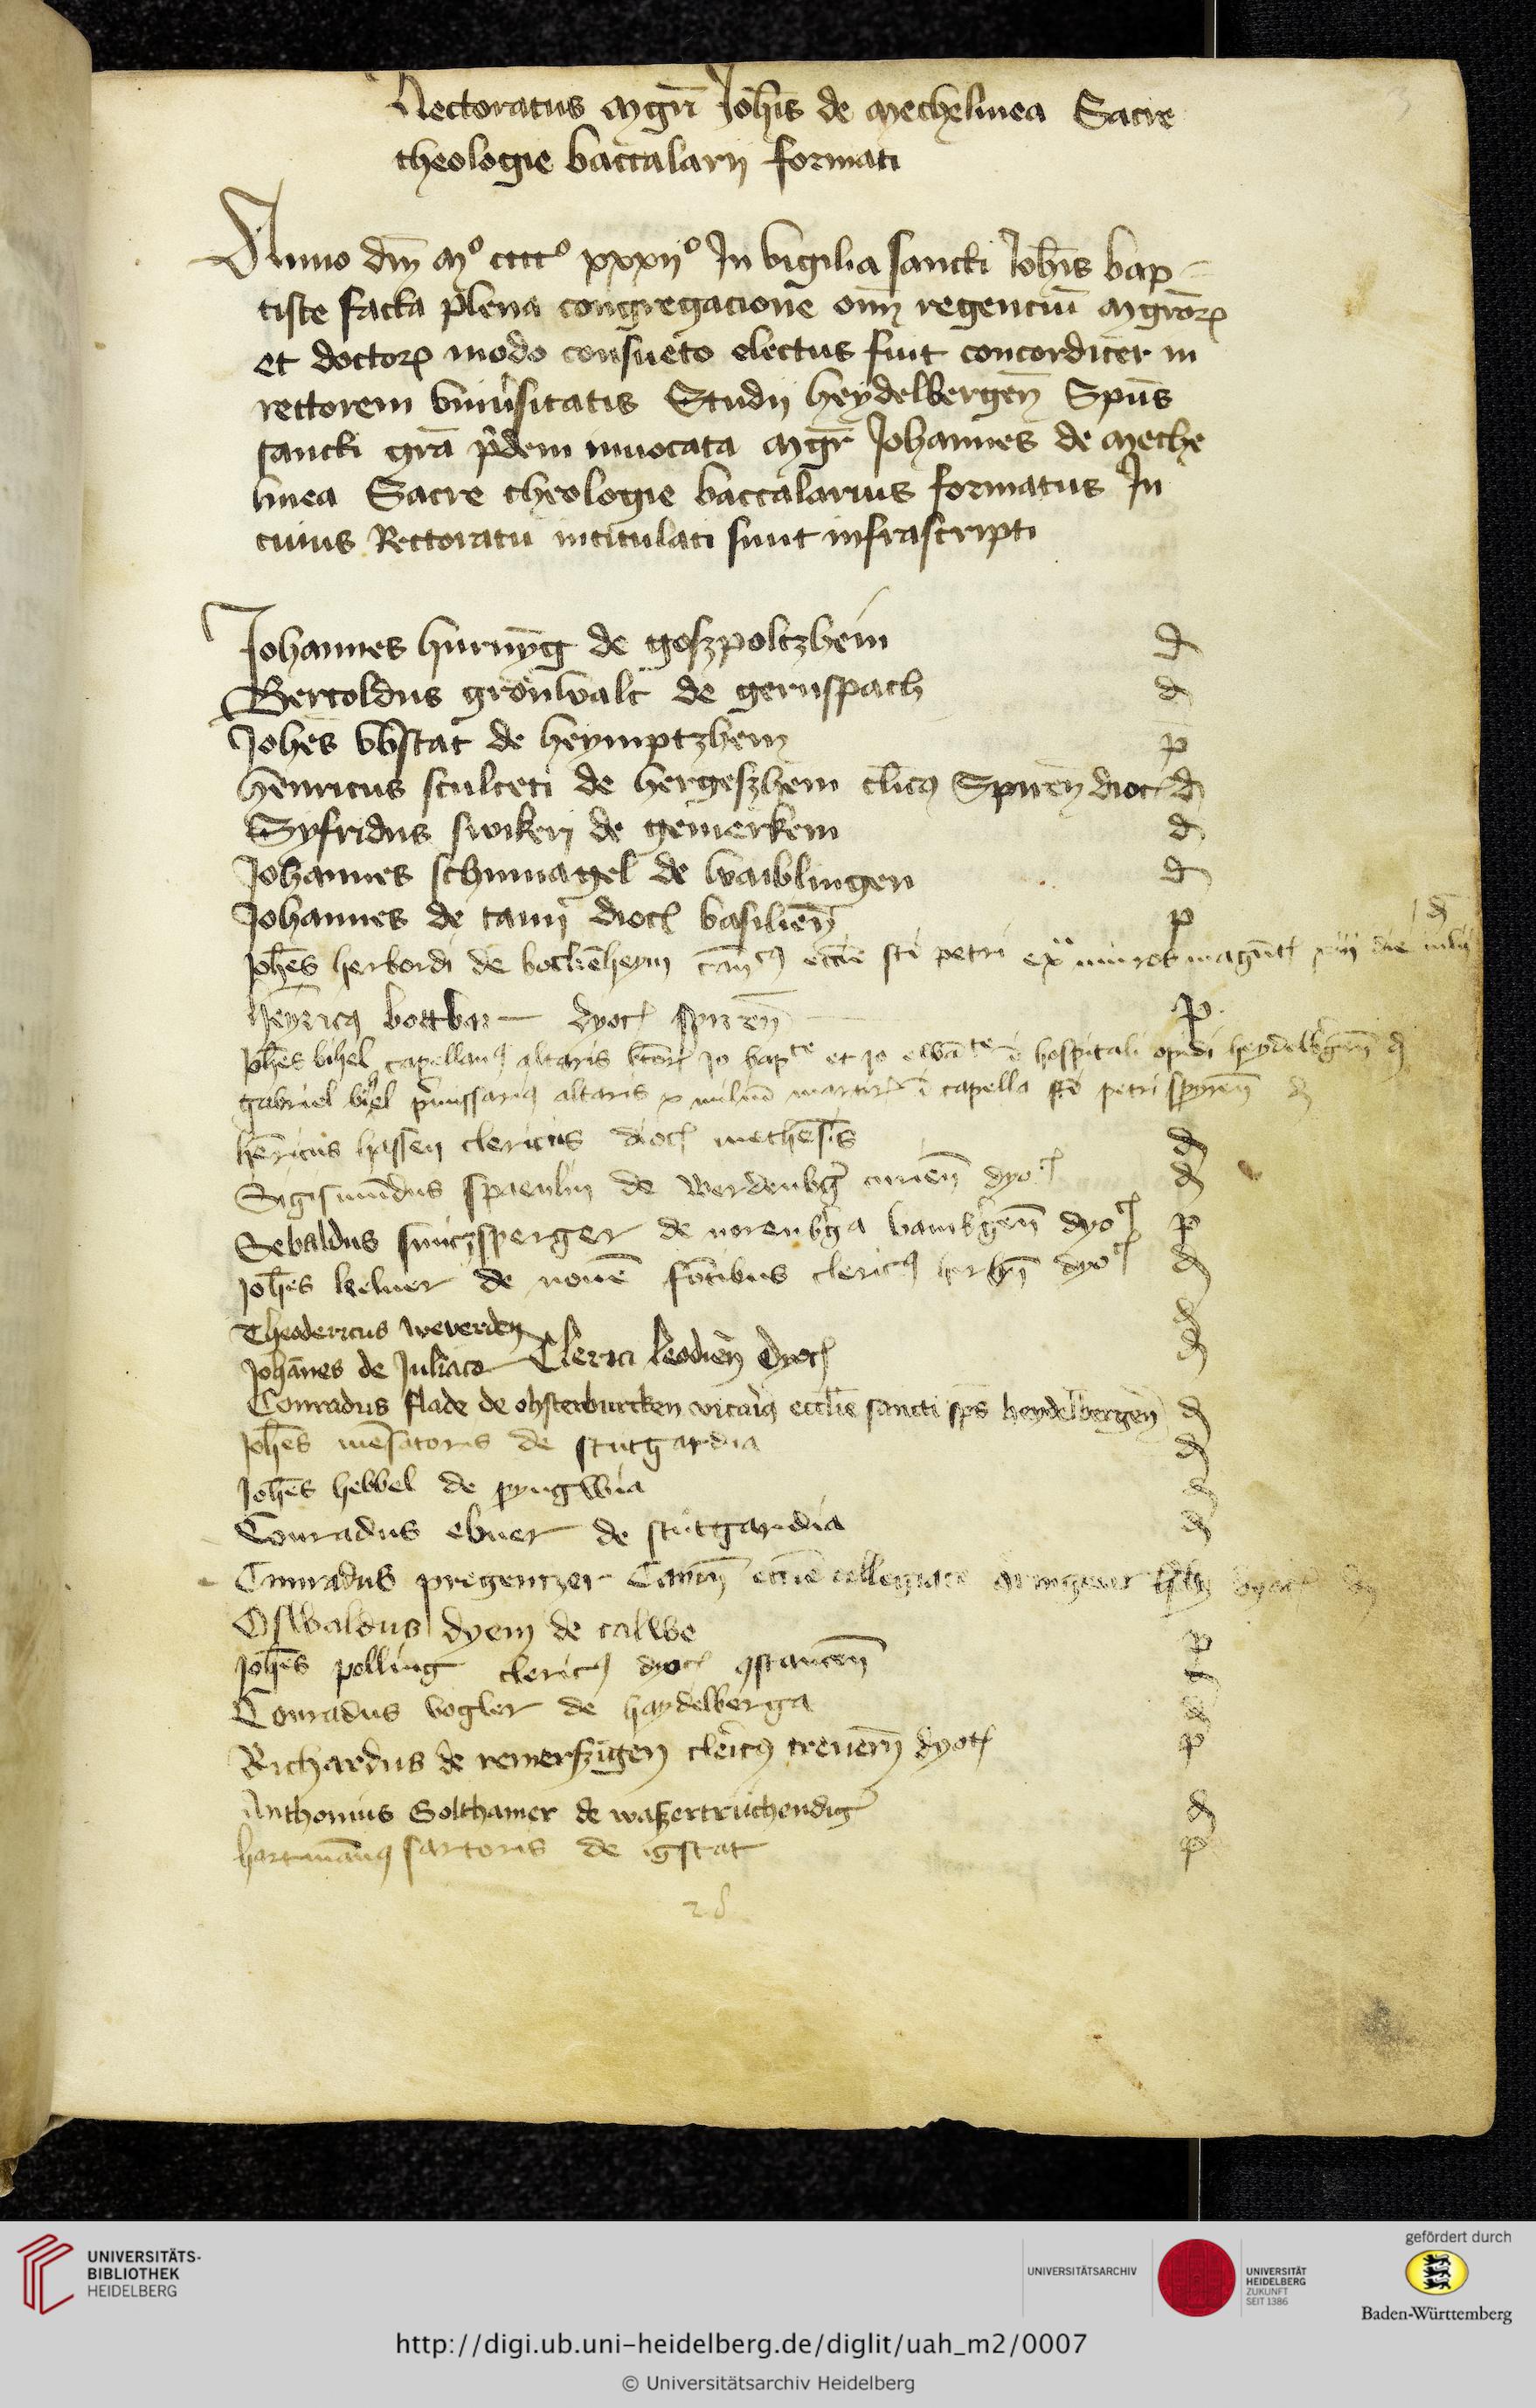 Rectoratus mgrī Joh̄is de mechelinea Sacre
theologie baccalarij formati
Anno dm̄ Mº ccccº xxxijº In vigilia sancti Joh̄is bap-
tiste facta plena congregacione om̄ regenciū mgror̄
et doctor̄ modo consueto electus fuit concorditer in
rectorem vniu'sitatis Studij heydelbergeñ Sp̄us
sancti grā p'dem inuocata mgr̄ Johannes de meche
linea Sacre theologie baccalarius formatus In
cuius Rectoratu intitulati sunt infrascripti
Johannes hurnyg de goszpoltzheim d
Bertoldus gronwalt de gernspach d
Joh̄es vbstat de heymptzhem p
henricus sculteti de hergeszhem cl̄icus Spireñ dioc d
Syfridus swikeri de gemerkem d
Johannes schnnagel de waiblingen d
Johannes de tann dioc basilieñ p
Joh̄es herbordi de bockēheym can̄cus eccīe sti petri ex muros magūt xiij die iulij d
heyricus bottbar dyoc spireñ p
Joh̄es bihel capellanus altaris btōr Jo bapte et Jo ewāte ī hospitali opidi heydelb'geñ d
gabriel bihel p'missarius altaris x miliū martir ī capella sti petri spyreñ d
hēricus hassen clericus dioc methēsis d
Sigismūdus spaenlin de werdenbg' curieñ dyoc d
Sebaldus smitzsperger de norenb'ga bamb'geñ dyoc p
Joh̄es kelner de nouē fōtibus clericus dyoc d
Theodericus weverden d
Johānes de Juliaco Clerici leodieñ dyoc d
Conradus flade de ohsterburcken vicarius eccl̄ie sancti sp̄s heydelbergeñ d
Joh̄es mēsatoris de stutgardia d
Joh̄es hebbel de d
Conradus ebner de stutgardia d
Cunradus pregentzer Canoñ eccīe collegiate dyoc
Oswaldus dyem de calwe p
Joh̄es polling clericus dyoc 9stancieñ d
Conradus vogler de haydelberga d
Richardus de remerszigen clericus treuereñ dyoc p
Anthonius Solthamer de waszertruchendig' d
hartmānus sartoris de igstat p
28
UNIVERSITÄTS-
BIBLIOTHEK
HEIDELBERG
UNIVERSITÄTSARCHIV
UNIVERSITÄT
HEIDELBERG
ZUKUNFT
SEIT 1386
gefördert durch
Baden-Württemberg
http://digi.ub.uni-heidelberg.de/diglit/uah_m2/0007
© Universitätsarchiv Heidelberg